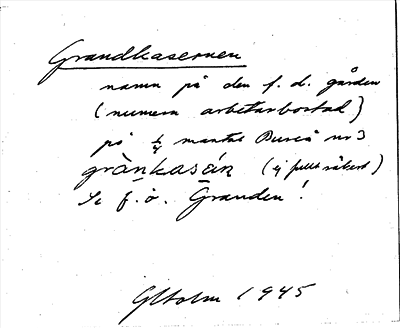 Grandkasernen
namn på den f. d. gården
(numera arbetarbostad)
på 1/4 mantal Bureå nr 3
grànkasáṛn (ej fullt säkert)
Se f. ö. Granden!
GHolm 1945